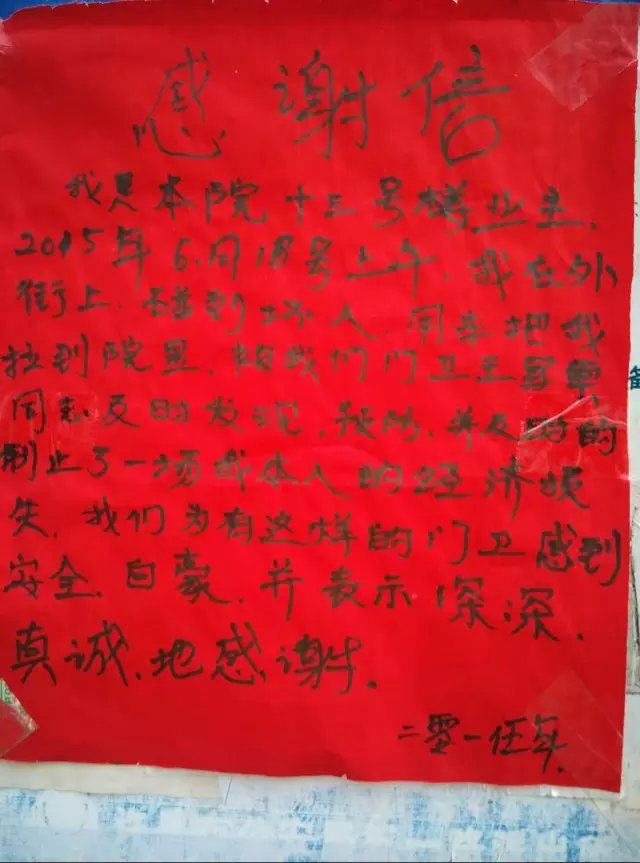 感谢信
我是本院十三号楼业主.
2015年6.月18号上午.我在外
街上.碰到坏人.回来把我
拉到院里.被我们门卫王
同志及时发现.预防.并及时的
制止了一场我本人的经济损
失.我们为有这样的门卫感到
安全.自豪.并表示深深.
真诚.地感谢.
二零一伍年.
备